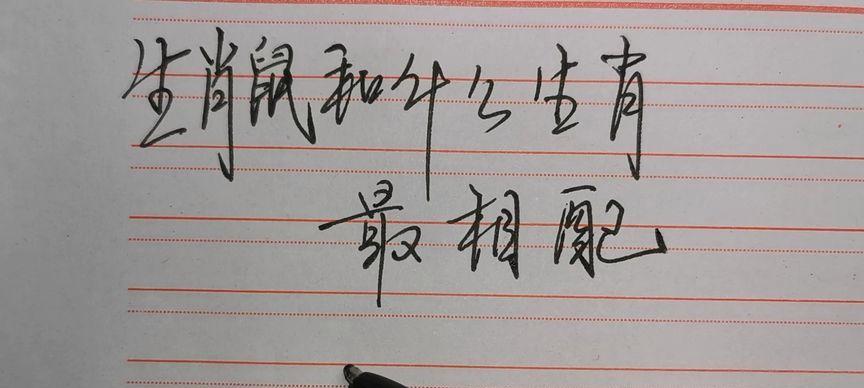 生肖鼠和什么生肖
最相配